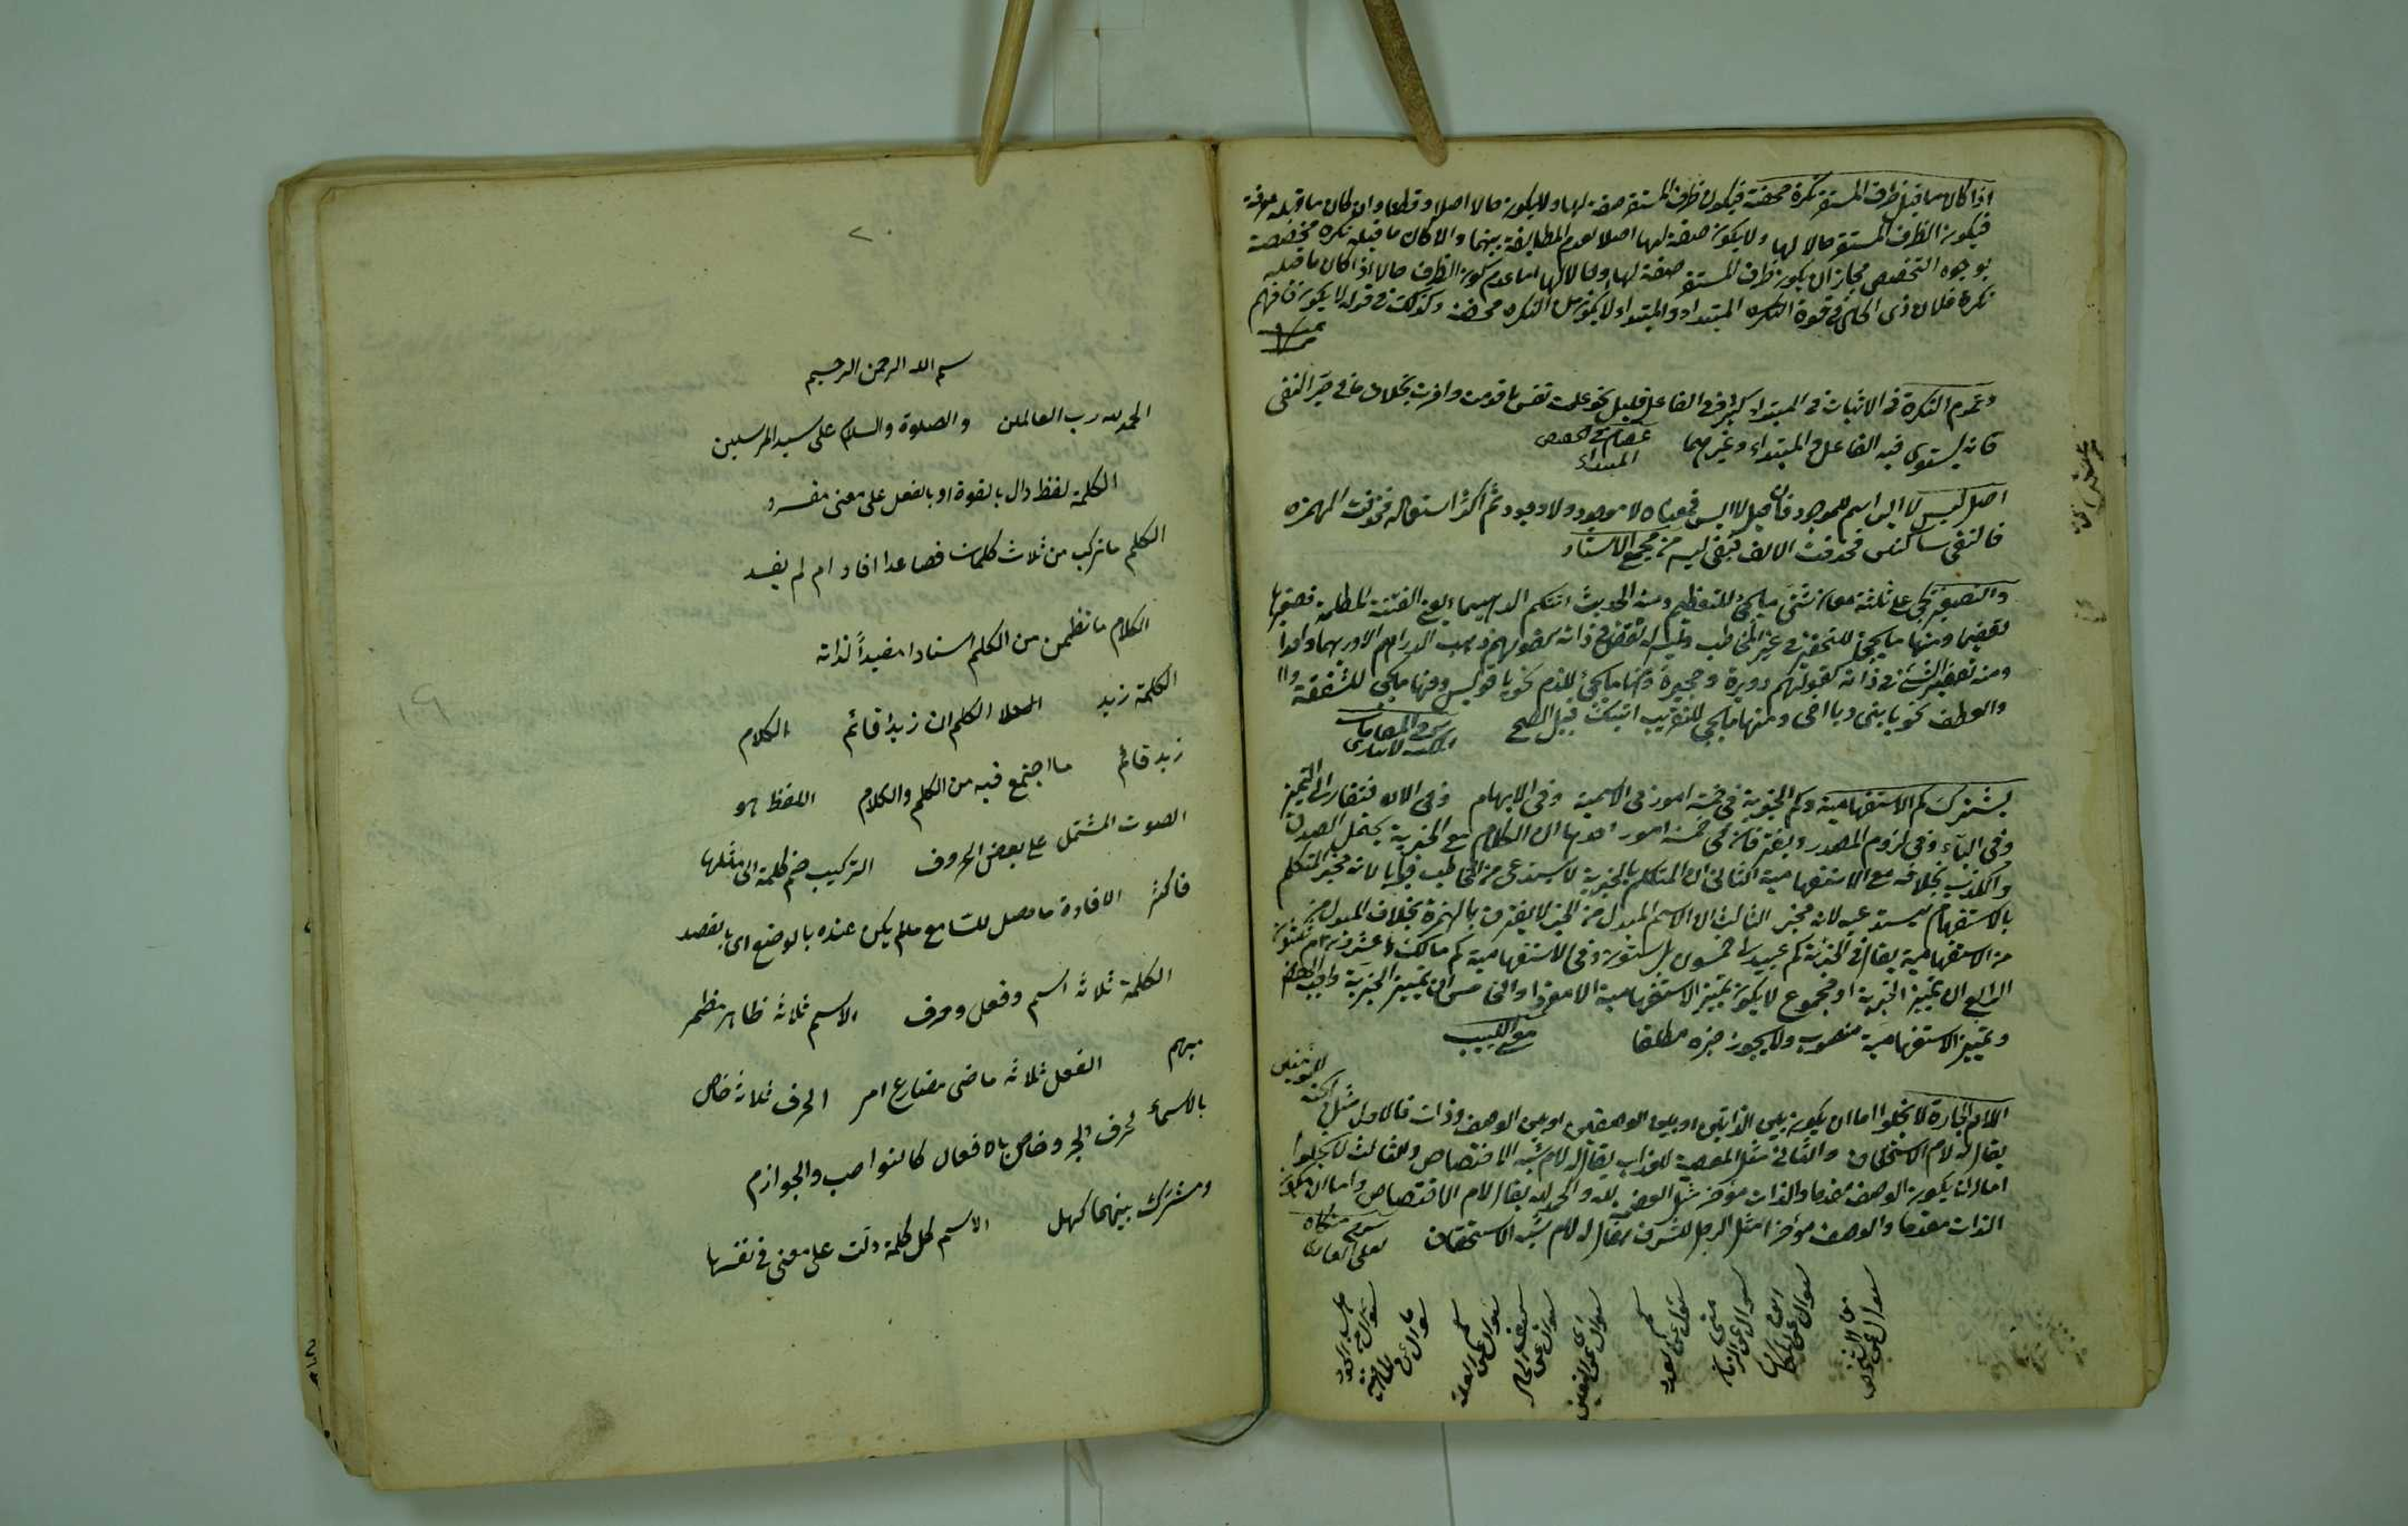 اذا كان ما قبل ظرف المستقر نكرة محضة فيكون ظرف المستقر صفة لها ولا يكون حالا اصلا وقطعا وان كان ما قبله معرفة
فيكون الظرف المستقر حالا لها ولا يكون صفة لها اصلا لعدم المطابقة بينهما والا كان ما قبله نكرة مخصصة
بوجوه التخصص فجاز ان يكون ظرف المستقر صفة لها وحالا لها اما عدم كون الظرف حالا اذا كان ما قبله
نكرة فلان ذى الحال فى قوة النكره المبتداء والمبتداء لا يكون من النكره محضة وكذلك فى قوله لا يكون فافهم
وتقدم النكرة فى الاثبات فى المبتداء كثير وفى الفاعل قليل نحو علمت نفس ما قدمت واخرت بخلاف ما فى حيز النفى
فانه يستوى فيه الفاعل والمبتداء وغيرهما
المبتداء
اصل ليس لا ايس اسم للموجود فان قيل لا ايس فمعناه لا موجود ولا وجود ثم اكثر استعماله فحذفت الهمزه
فالتقى ساكنين فحذفت الالف فبقى ليس من مجمع الاستاد
والتصغير يجى على ثلثة معان شتى ما يجئ للتعظيم ومنه الحديث اتتكم الدهيماء يعنى الفتنة المظلمة فصغرها
لعظيمها ومنها ما يجئ للتحقير فى غير المخاطب وليس له نقض فى ذاته كقولهم ذهبت الدراهم الا دريهما واحدا
ومنه تصغير الشئ فى ذاته لقولهم دويرة وحجيرة ومنها ما يجئ للذم نحو يا فويسق ومنها ما يجئ للشفقة
والعطف نحو يا بنى ويا اخى ومنها ما يجئ للتقريب اتيتك قبيل الصبح
شرح المقامات
يشترك كم الاستفهامية وكم الخبرية فى خمسة امور فى الاسمية وفى الابهام وفى الافتقار الى التمييز
وفى البناء وفى لزوم المصدر ويفترقان فى خمسة امور احدها ان الكلام مع الخبرية يحتمل الصدق
والكذب بخلافه مع الاستفهامية الثانى ان المتكلم بالخبرية لا يستدعى من المخاطب جوابا لانه مخبر المتكلم
بالاستفهام يستدعيه لانه مخبر الثالث ان الاسم المبدل من الخبر لا يقترن بالهمزة بخلاف المبدل من
من الاستفهامية يقال فى الخبرية كم عبيد لى خمسون بل ستون وفى الاستفهامية كم مالك أعشرون ام ثلثون
الرابع ان تمييز الخبرية او مجموع لا يكون تمييز الاستفهامية الا مفردا والخامس ان تمييز الخبرية واجب الخفض
وتمييز الاستفهامية منصوب ولا يجوز جره مطلقا
مغنى اللبيب
اللام الجارة لا يخلوا اما ان يكون بين الذاتين او بين الوصفين او بين الوصف وذات فالاول مثل الجنة للمؤمنين
يقال له لام الاستحقاق والثانى مثل المعصية للعذاب يقال له لام شبه الاختصاص والثالث لا يخلوا
اما ان يكون الوصف مقدما والذات مؤخر مثل العظمة لله والحمد لله يقال لام الاختصاص واما ان يكون
الذات مقدما والوصف مؤخرا مثل الرجل للشرف يقال له لام شبه الاستحقاق
شرح مشكاة
لعلى القارى
كم سوال عن العدد
متى سوال عن الزمان
اين سوال عن المكان
اى سوال عن التعيين
كيف سوال عن الحال
لم سوال عن العلة
٢٠
بسم الله الرحمن الرحيم
الحمد لله رب العالمين والصلوة والسلام على سيد المرسلين
الكلمة لفظ دال بالقوة او بالفعل على معنى مفرد
الكلم ما تركب من ثلاث كلمات فصاعدا افاد ام لم يفيد
الكلام ما تظمن من الكلم اسنادا مفيداً لذاته
الكلمة زيد الكلم ان زيدا قائم الكلام
زيد قائم ما اجتمع فيه من الكلم والكلام اللفظ هو
الصوت المشتمل على بعض الحروف التركيب ضم كلمة الى مثلها
فاكثر الافادة ما حصل للسامع ما لم يكن عنده بالوضع اى بالقصد
الكلمة ثلاثة اسم وفعل وحرف الاسم ثلاثة ظاهر مظمر
مبهم الفعل ثلاثة ماضى مضارع امر الحرف ثلاثة خاص
بالاسماء كحرف الجر وخاص بالافعال كالنواصب والجوازم
ومشترك بينهما كهل الاسم كل كلمة دلت على معنى فى نفسها